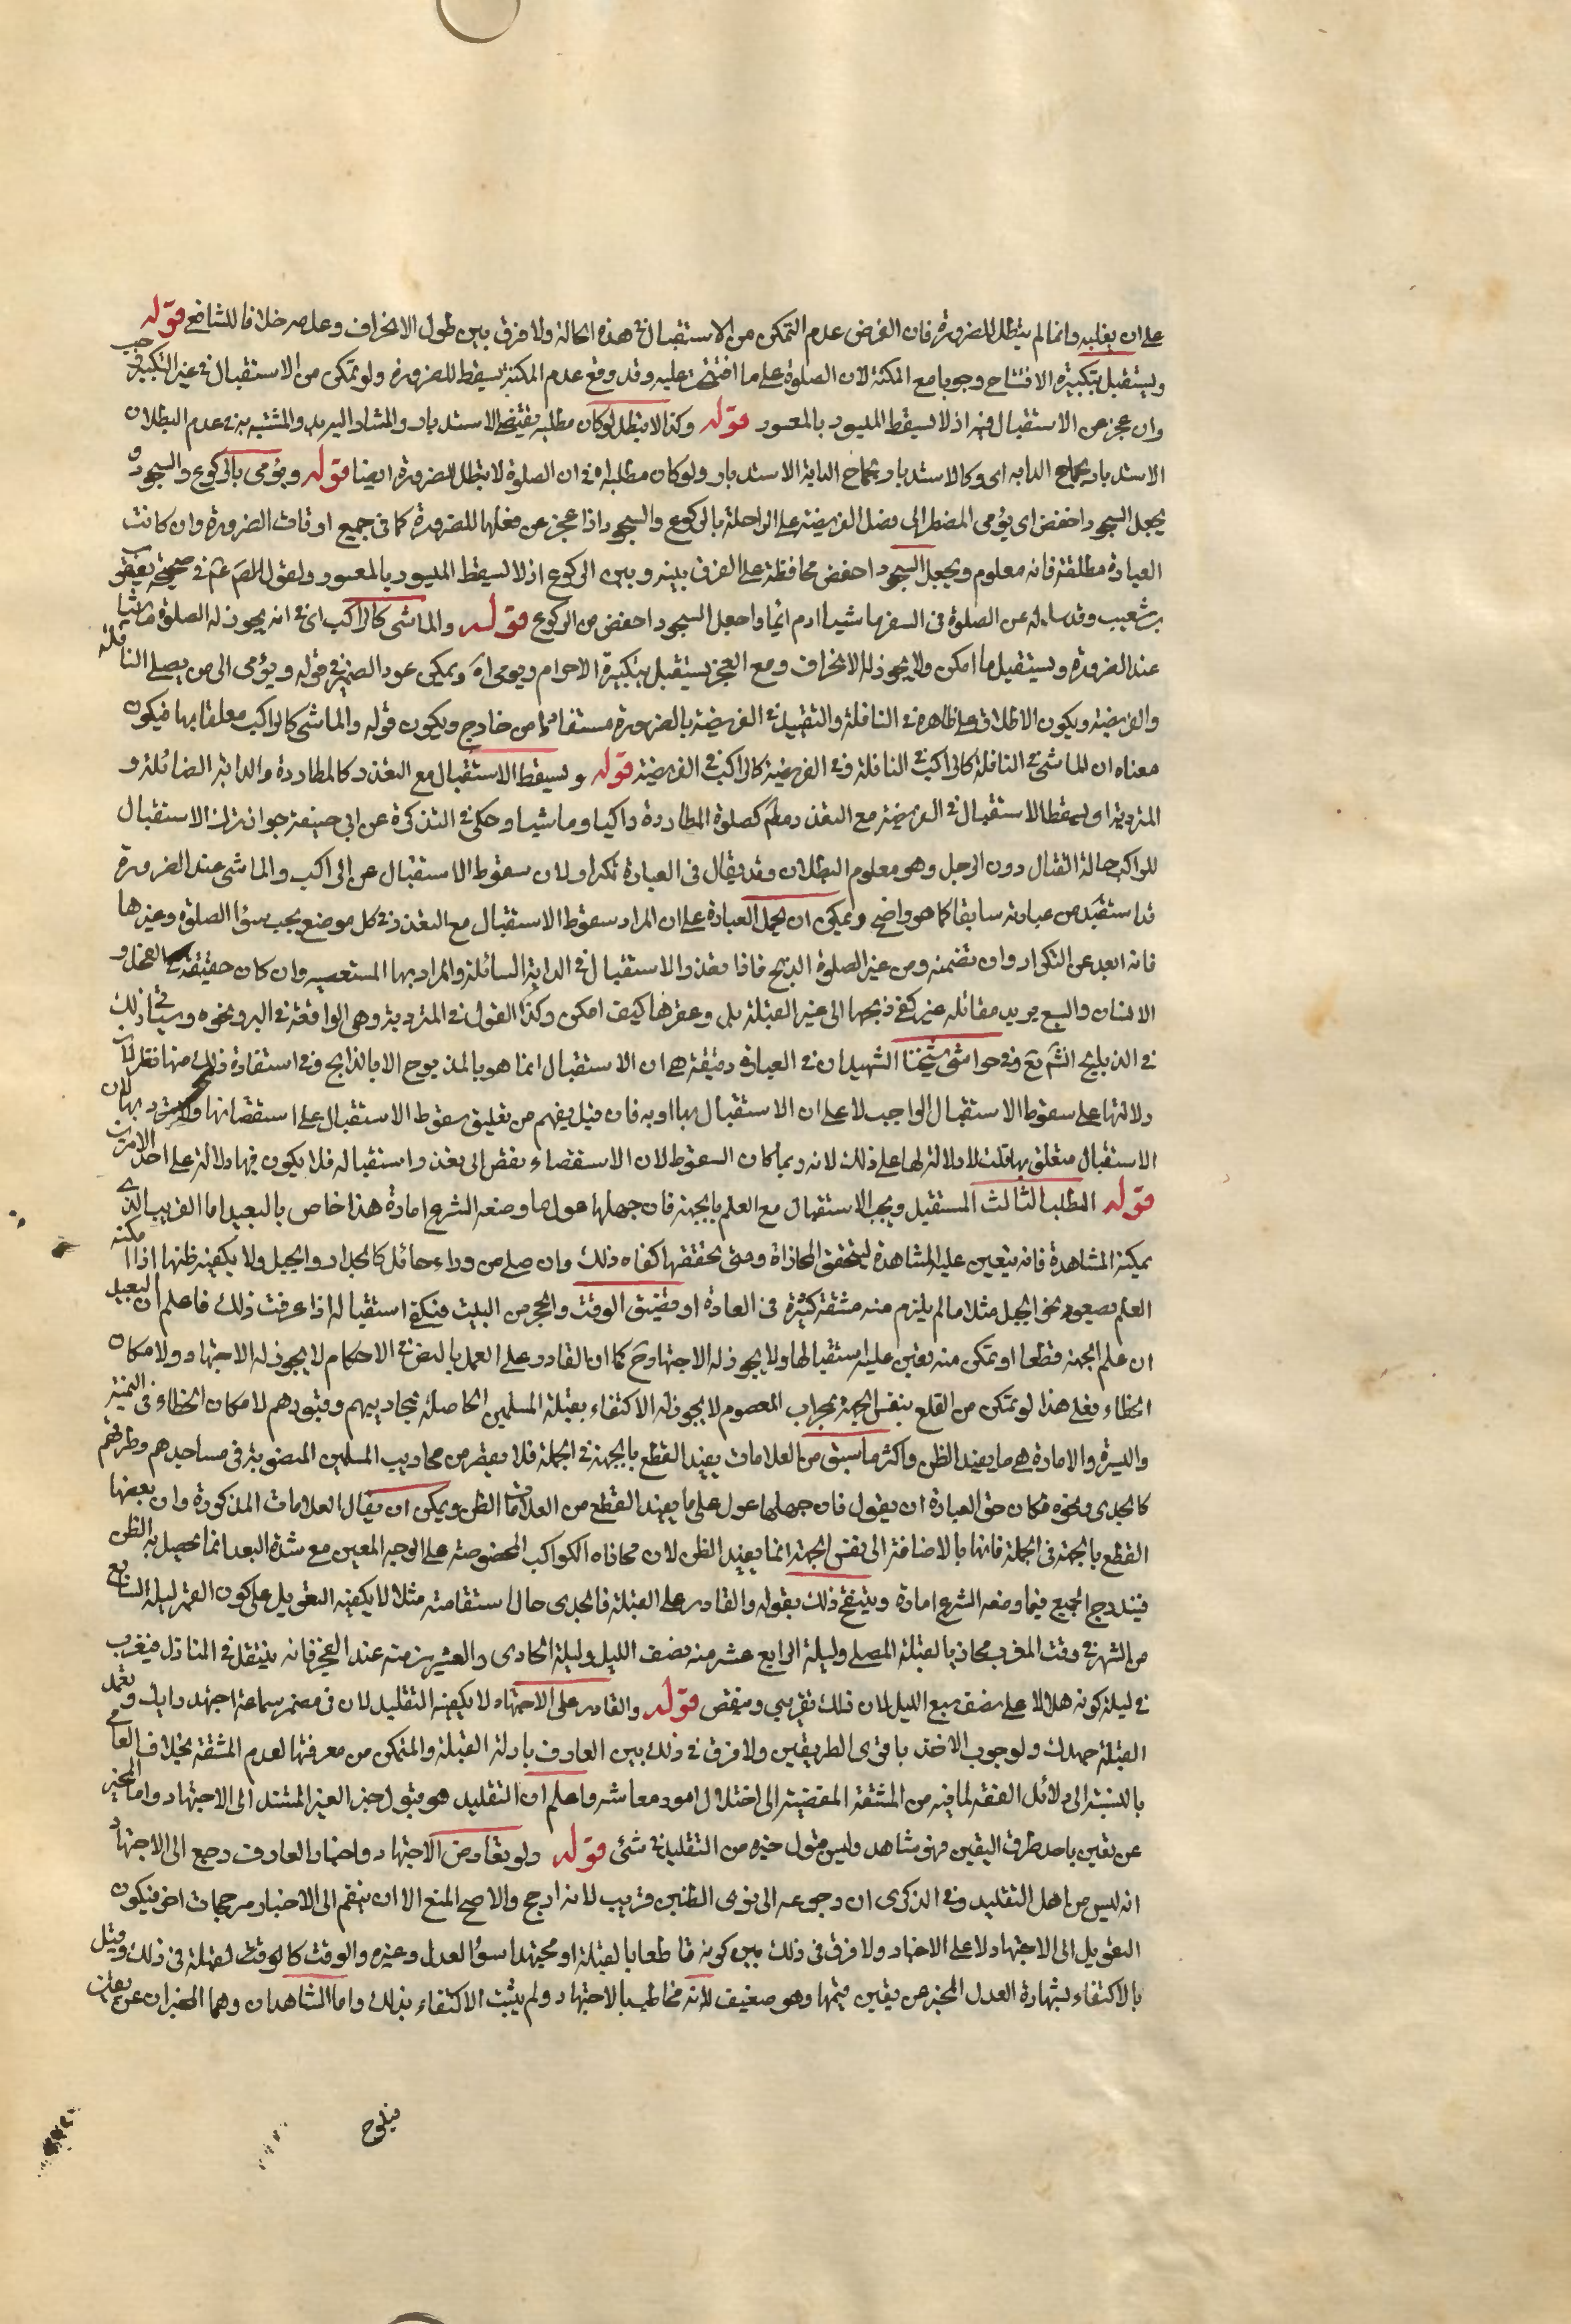 على ان يغلبه وانما لم يبطل للضرورة فان الفرض عدم التمكن من الاستقبال في هذه الحالة ولا فرق بين طول الانحراف وعدمه خلافا للشافعي قوله
ويستقبل بتكبيرة الافتتاح وجوبا مع المكنة لان الصلوة على ما افتتحت عليه وقد وقع عدم المكنة يسقط للضرورة ولو تمكن من الاستقبال في غير التكبير وجب
وان عجز عن الاستقبال فيه اذ لا يسقط الميسور بالمعسور قوله وكذا لا تبطل لو كان مطلبه يقتضي الاستدبار والمشار اليه والمشتبه به في عدم البطلان
الاستدبار بجماح الدابه اى وكالاستدبار بجماح الدابة الاستدبار ولو كان مطلبا له في ان الصلوة لا تبطل للضرورة ايضا قوله ويؤمى بالركوع والسجود و
يجعل السجود اخفض اى يؤمى المضطر الى فعل الفريضة على الراحلة بالركوع والسجود اذا عجز عن فعلهما للضرورة كما في جميع اوقات الضرورة وان كانت
العبادة مطلقة فانه معلوم ويجعل السجود اخفض محافظة على الفرق بينه وبين الركوع اذ لا يسقط الميسور بالمعسور ولقول الص عم في صحيحة يعقوب
بن شعيب وقد ساله عن الصلوة في السفر ماشيا اوم ائما واجعل السجود اخفض من الركوع قوله والماشى كالراكب اى في انه يجوز له الصلوة ماشيا
عند الضرورة ويستقبل ما امكن ولا يجوز له الانحراف ومع العجز يستقبل بتكبيرة الاحرام ويومى اه ويمكن عود الضمير في قوله ويؤمى الى من يصلي النافلة
والفريضة ويكون الاطلاق على ظاهره في النافلة والتقييد في الفريضة بالضرورة مستفادا من خارج ويكون قوله والماشى كالراكب معلقا بها فيكون
معناه ان الماشى في النافلة كالراكب في النافلة وفي الفريضة كالراكب في الفريضة قوله ويسقط الاستقبال مع التعذر كالمطاردة والدابة الصائلة و
المتردية اى يسقط الاستقبال في الفريضة مع التعذر مطم كصلوة المطاردة راكبا وماشيا وحكى في التذكرة عن ابي حنيفة جواز ترك الاستقبال
للراكب حالة القتال دون الرجل وهو معلوم البطلان وقد يقال في العبادة تكرار لان سقوط الاستقبال عن الراكب والماشى عند الضرورة
قد استفيد من عبارته سابقا كما هو واضح ويمكن ان يحمل العبارة على ان المراد سقوط الاستقبال مع التعذر في كل موضع يجب سوٰا الصلوة وغيرها
فانه ابعد عن التكرار وان تضمنه ومن غير الصلوة الذبح فاذا تعذر الاستقبال في الدابة الصائلة والمراد بها المستعصيه وان كان حقيقة في الفحل و
الانسان والسبع يريد مقاتله غيره كفى ذبحها الى غير القبلة بل وعقرها كيف امكن وكذا القول في المتردية وهي الواقعة في البير ونحوه وسيأتي ذلك
في الذبايح انشم تع وفي حواشى شيخنا الشهيد ان في العبارة دقيقة هى ان الاستقبال انما هو بالمذبوح لا بالذابح وفي استفادة ذلك منها نظر لان
دلالتها على سقوط الاستقبال الواجب لا على ان الاستقبال بها او به فان قيل يفهم من تعليق سقوط الاستقبال على استعصائها بها لان
الاستقبال متعلق بها قلت لا دلالة لها على ذلك لانه ربما كان السقوط لان الاستعصاء يفضى الى تعذر استقباله فلا يكون فيها دلالة على احد الامرين
قوله المطلب الثالث المستقبل ويجب الاستقبال مع العلم بالجهة فان جهلها عول ما وضعه الشرع امارة هذا خاص بالبعيد اما القريب الذى
يمكنه المشاهدة فانه يتعين عليه المشاهدة ليتحقق المحاذاة ومتى تحققها كفاه ذلك وان صلى من وراء حائل كالجدار والجبل ولا يكفيه ظنها اذا امكنه
العلم بصعود نحو الجبل مثلا ما لم يلزم منه مشقة كثيرة في العادة او تضيق الوقت والحجر من البيت فيكفي استقباله اذا عرفت ذلك فاعلم ان البعيد
ان علم الجهة قطعا او تمكن منه تعين عليه استقبالها ولا يجوز له الاجتهاد ح كما ان القادر على العمل بالنص في الاحكام لا يجوز له الاجتهاد ولامكان
الخطاء فعلى هذا لو تمكن من القطع بنفس الجهة بمحراب المعصوم لا يجوز له الاكتفاء بقبلة المسلمين الحاصلة بمحاريبهم وقبورهم لامكان الخطاء في اليمنة
واليسرة والامارة هى ما يفيد الظن واكثر ما سبق من العلامات يفيد القطع بالجهة في الجملة فلا يقصر من محاريب المسلمين المنصوبة في مساجدهم وطرقهم
كالجدى ونحوه فكان حق العبارة ان يقول فان جهلها عول على ما يفيد القطع من العلامات ثم الظن ويمكن ان يقال العلامات المذكورة وان بعضها
القطع بالجهة في الجملة فانها بالاضافة الى نفس الجهة انما يفيد الظن لان محاذاه الكواكب المخصوصة على الوجه المعين مع شدة البعد انما يحصل به الظن
فيندرج الجميع فيما وضعه الشرع امارة وينبه على ذلك بقوله والقادر على القبلة فالجدى حال استقامته مثلا لا يكفيه التعويل على كون القمر ليلة السابع
من الشهر في وقت المغرب محاذيا لقبلة المصلى وليلة الرابع عشر منه نصف الليل وليلة الحادى والعشرين منه عند الفجر فانه ينتقل في المنازل فيغرب
في ليلة كونه هلالا على نصف سبع الليل لان ذلك تقريبي وينقص قوله والقادر على الاجتهاد لا يكفيه التقليد لان في مضمر سماعة اجتهد رايك وتعمد
القبلة جهدك ولوجوب الاخذ باقوى الطريقين ولا فرق في ذلك بين العارف بادلة القبلة والمتمكن من معرفتها لعدم المشقة بخلاف العامى
بالنسبة الى دلائل الفقه لما فيه من المشقة المفضية الى اختلال امور معاشه واعلم ان التقليد هو قبول خبر الغير المستند الى الاجتهاد واما المخبر
عن يقين باحد طرق اليقين فهو شاهد وليس قبول خبره من التقليد في شئ قوله ولو تعارض الاجتهاد واخبار العارف رجع الى الاجتهاد
انه ليس من اهل التقليد وفي الذكرى ان رجوعه الى اقوى الظنين قريب لانه ارجح والاصح المنع الا ان ينضم الى الاخبار مرجحات اخر فيكون
التعويل الى الاجتهاد لا على الاخبار ولا فرق في ذلك بين كونه قاطعا بالقبلة او مجتهدا سوٰا العدل وغيره والوقت كالوقت لقبلة في ذلك وقيل
بالاكتفاء بشهادة العدل المخبر عن يقين فيهما وهو ضعيف لانه مخاطب بالاجتهاد ولم يثبت الاكتفاء بذلك واما الشاهدان وهما المخبران عن يقين